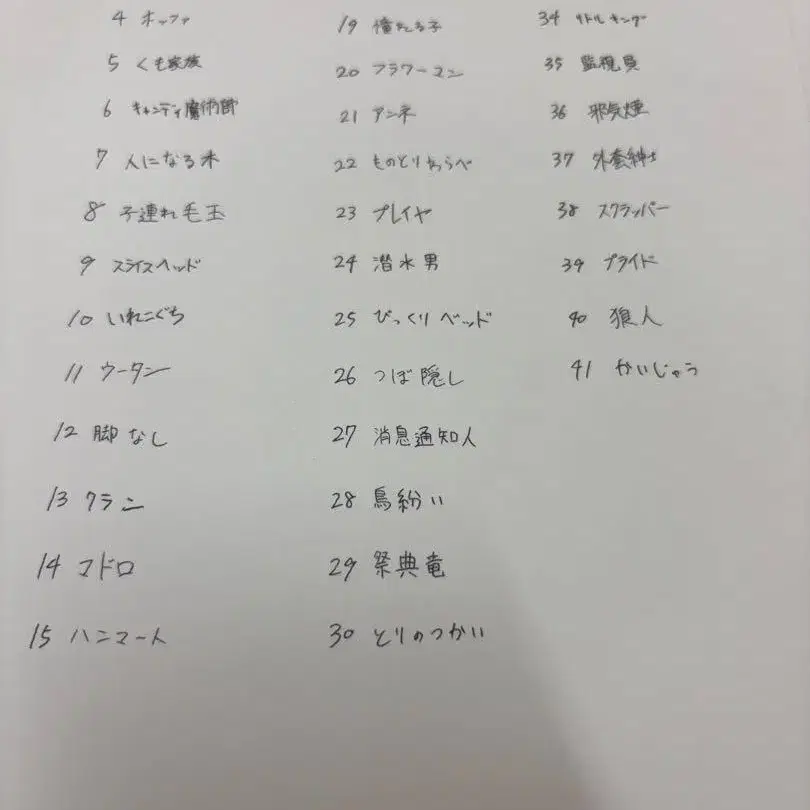 4 ホッファ
5 くも家族
6 キャンディ魔術師
7 人になる木
8 子連れ毛玉
9 スライスヘッド
10 いれこぐち
11 ウータン
12 脚なし
13 クラン
14 マドロ
15 ハンマート
19 憧れる子
20 フラワーマン
21 アンネ
22 ものとりわらべ
23 プレイヤ
24 潜水男
25 びっくりベッド
26 つぼ隠し
27 消息通知人
28 鳥紛い
29 祭典竜
30 とりのつかい
34 リトルキング
35 監視員
36 邪気煙
37 外套紳士
38 スクラッパー
39 プライド
40 狼人
41 かいじゅう